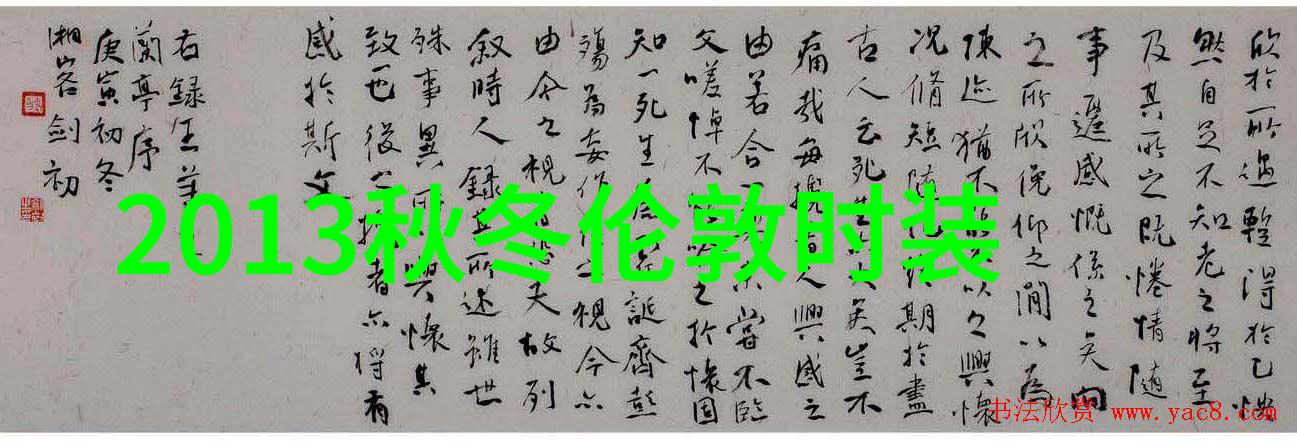 欣於所遇蹔得於己快
然自足不知老之將至
及其所之既惓情隨
事遷感慨係之矣向
之所欣俛仰之間以為
陳迹猶不以之興懷
况脩短隨終期於盡
古人云死生大矣豈不
痛哉每攬昔人興感之
由若合未嘗不臨
文嗟悼不喻之於懷固
知一死生為誕齊彭
殤為妄作之視今亦
由今之視昔悲夫故列
叙時人錄其所述雖世
殊事異所興懷其
致一也後之者亦將有
感於斯文
右錄王羲
蘭亭序
庚寅初冬
湘客劍初
2013秋冬伦敦时装
书法欣赏 www.yac8.com